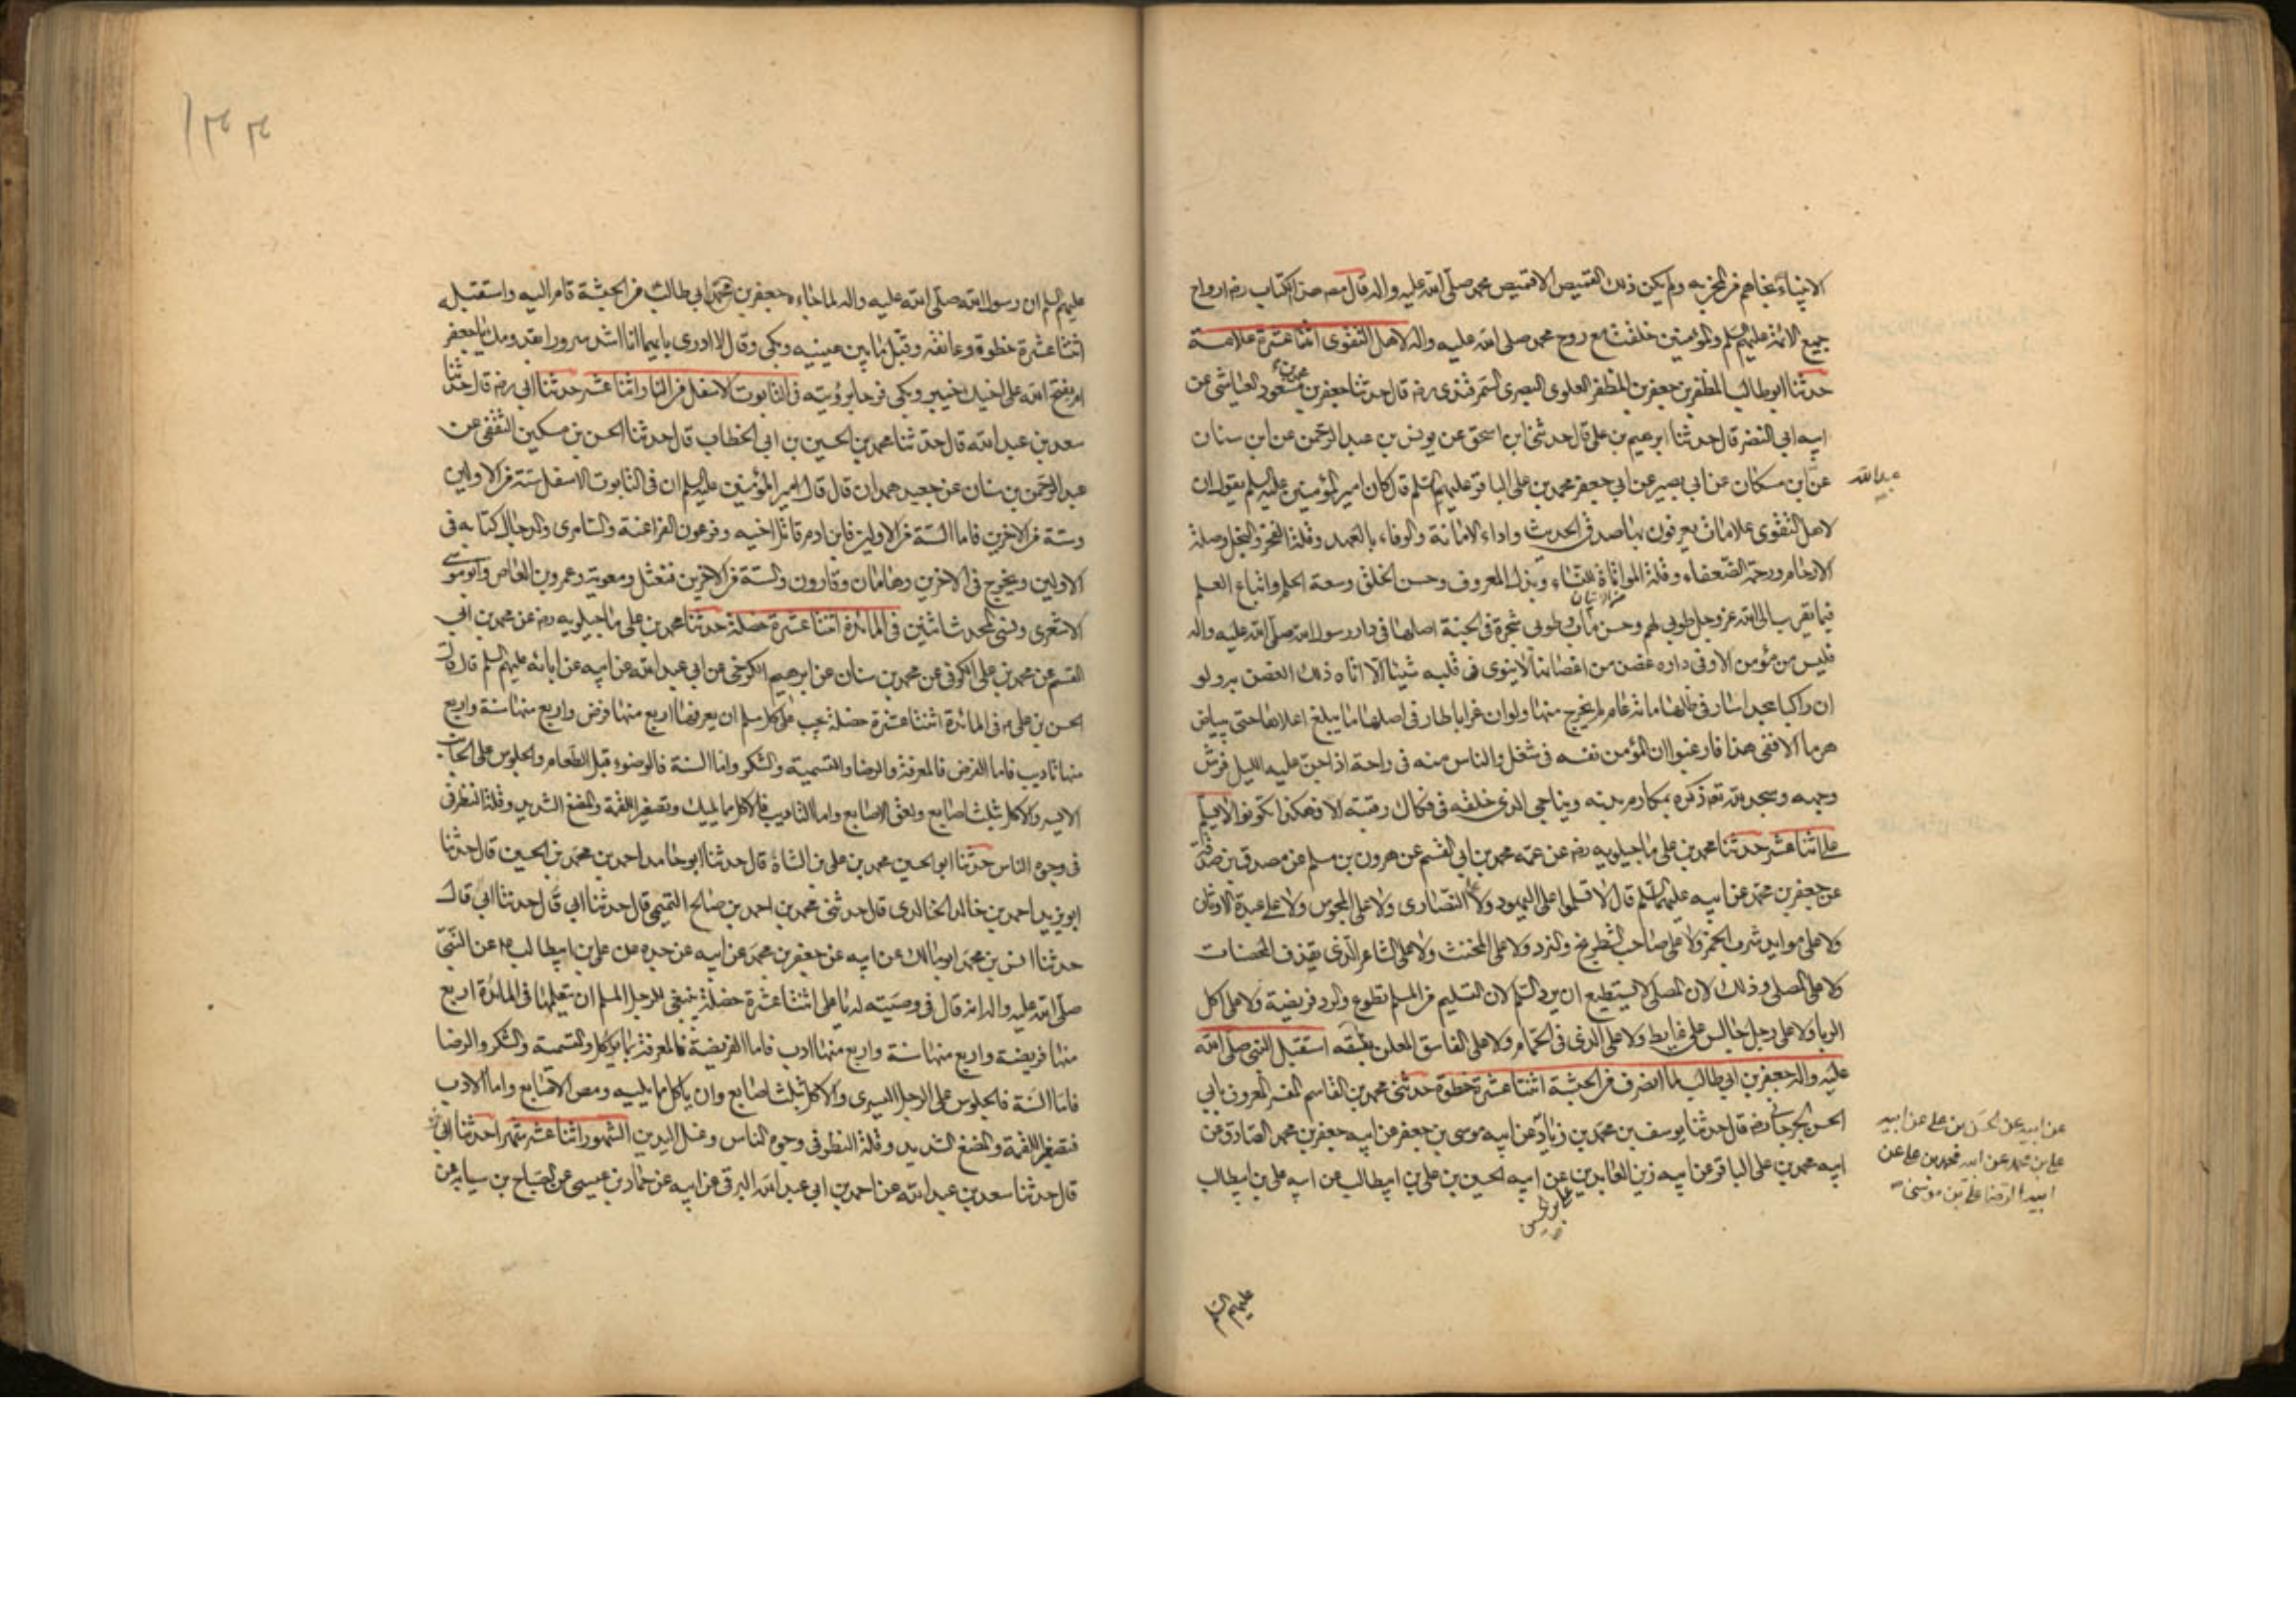 الانبياء نجاهم من المخزيه ولم يكن ذلك القميص الا قميص محمد صلى الله عليه واله قال مص هذا الكتاب رضه ارواح
جميع الائمة عليهم السلم والمؤمنين خلقت مع روح محمد صلى الله عليه واله لاهل التقوى اثنتا عشرة علامة
حدثنا ابو طالب المظفر بن جعفر بن المظفر العلوى البصرى السمرقندى رضه قال حدثنا جعفر بن محمد بن مسعود العياشى عن
ابيه ابى النضر قال حدثنا ابرهيم بن على قال حدثنى ابن اسحق عن يونس بن عبد الرحمن عن ابن سنان
عن ابن مسكان عن ابى بصير عن ابى جعفر محمد بن على الباقر عليهم السلم قال كان امير المؤمنين عليه السلم يقول ان
عبد الله
لاهل التقوى علامات يعرفون بها صدق الحديث واداء الامانة والوفاء بالعهد وقلة الفخر والبخل وصلة
الارحام ورحمة الضعفاء وقلة المواتاة للنساء وبذل المعروف وحسن الخلق وسعة الحلم واتباع العلم
فيما يقرب الى الله عز وجل طوبى لهم وحسن مآب وطوبى شجرة فى الجنة اصلها فى دار رسول الله صلى الله عليه واله
فليس من مؤمن الا وفى داره غصن من اغصانها لا ينوى فى قلبه شيئا الا اتاه ذلك الغصن به ولو
ان راكبا مجدا سار فى ظلها مائة عام لم يخرج منها ولو ان غرابا طار فى اصلها ما يبلغ اعلاها حتى يبياض
هرما الا ففى هذا فارغبوا ان المؤمن نفسه فى شغل والناس منه فى راحة اذا جن عليه الليل فرش
وجهه وسجد لله تعه ذكره بمكارم بدنه ويناجى الذى خلقه فى فكاك رقبته الا فهكذا تكونوا لا يسلم
على اثنا عشر حدثنا محمد بن على ماجيلويه رضه عن عمه محمد بن ابى القسم عن هرون بن مسلم عن مصدق بن صدقة
عن جعفر بن محمد عن ابيه عليهما السلم قال لا تسلموا على اليهود ولا على النصارى ولا على المجوس ولا على عبدة الاوثان
ولا على موايد شرب الخمر ولا على صاحب الشطرنج والنرد ولا على المخنث ولا على الشاعر الذى يقذف المحصنات
ولا على المصلى وذلك لان المصلى لا يستطيع ان يرد السلم لان التسليم من المسلم تطوع والرد فريضة ولا على اكل
الربا ولا على رجل جالس على غايط ولا على الذى فى الحمام ولا على الفاسق المعلن بفسقه استقبل النبى صلى الله
عليه واله جعفر بن ابى طالب لما انصرف من الحبشة اثنتا عشرة خطوة حدثنى محمد بن القاسم المفسر المعروف بابى
الحسن الجرجانى رضه قال حدثنا يوسف بن محمد بن زياد عن ابيه موسى بن جعفر عن ابيه جعفر بن محمد الصادق عن
ابيه محمد بن على الباقر عن ابيه زين العابدين عن ابيه الحسين بن على بن ابيطالب عن ابيه على بن ابيطالب
عن ابيه عن الحسن بن على عن ابيه
على بن محمد عن ابيه محمد بن على عن
ابيه الرضا على بن موسى
عليهم السلم
عليهم السلم ان رسول الله صلى الله عليه واله لما جاءه جعفر بن ابى طالب من الحبشة قام اليه واستقبله
اثنتا عشرة خطوة وعانقه وقبل ما بين عينيه وبكى وقال لا ادرى بايهما انا اشد سرورا بقدومك يا جعفر
ام بفتح الله على اخيك خيبر وبكى فرحا برؤيته فى التابوت الاسفل من النار اثنا عشر حدثنا ابى رضه قال حدثنا
سعد بن عبد الله قال حدثنا محمد بن الحسين بن ابى الخطاب قال حدثنا الحسن بن مسكين الثقفى عن
عبد الرحمن بن سنان عن جعيد همدان قال قال امير المؤمنين عليه السلم ان فى التابوت الاسفل ستة من الاولين
وستة من الاخرين فاما الستة من الاولين فابن ادم قاتل اخيه وفرعون الفراعنة والسامرى والدجال كتابه فى
الاولين ويخرج فى الاخرين وهامان وقارون والستة من الاخرين فنعثل ومعوية وعمرو بن العاص وابو موسى
الاشعرى ونسى المحدث اثنين فى المائدة اثنتا عشرة خصلة حدثنا محمد بن على ماجيلويه رضه عن محمد بن ابى
القسم عن محمد بن على الكوفى عن محمد بن سنان عن ابرهيم الكرخى عن ابى عبد الله عن ابيه عن ابائه عليهم السلم قال قال
الحسن بن على فى المائدة اثنتا عشرة خصلة يجب على كل مسلم ان يعرفها اربع منها فرض واربع منها سنة واربع
منها تاديب فاما الفرض فالمعرفة والرضا والتسمية والشكر واما السنة فالوضوء قبل الطعام والجلوس على الجانب
الايسر والاكل بثلث اصابع ولعق الاصابع واما التاديب فالاكل مما يليك وتصغير اللقمة والمضغ الشديد وقلة النظر فى
فى وجوه الناس حدثنا ابو الحسين محمد بن على بن الشاة قال حدثنا ابو حامد احمد بن محمد بن الحسين قال حدثنا
ابو يزيد احمد بن خالد الخالدى قال حدثنى محمد بن احمد بن صالح التميمى قال حدثنا ابى قال حدثنا ابى قال
حدثنا انس بن محمد ابو مالك عن ابيه عن جعفر بن محمد عن ابيه عن جده عن على بن ابيطالب عن النبى
صلى الله عليه واله انه قال فى وصيته له يا على اثنتا عشرة خصلة ينبغى للرجل المسلم ان يتعلمها فى المائدة اربع
منها فريضة واربع منها سنة واربع منها ادب فاما الفريضة فالمعرفة بما يؤكل والتسمية والشكر والرضا
فاما السنة فالجلوس على الرجل اليسرى والاكل بثلث اصابع وان ياكل ما يليه ومص الاصابع واما الادب
فتصغير اللقمة والمضغ الشديد وقلة النظر فى وجوه الناس وغسل اليدين الشهور اثنا عشر شهرا حدثنا ابى
قال حدثنا سعد بن عبد الله عن احمد بن ابى عبد الله البرقى عن ابيه عن حماد بن عيسى عن الصباح بن سيابه عن